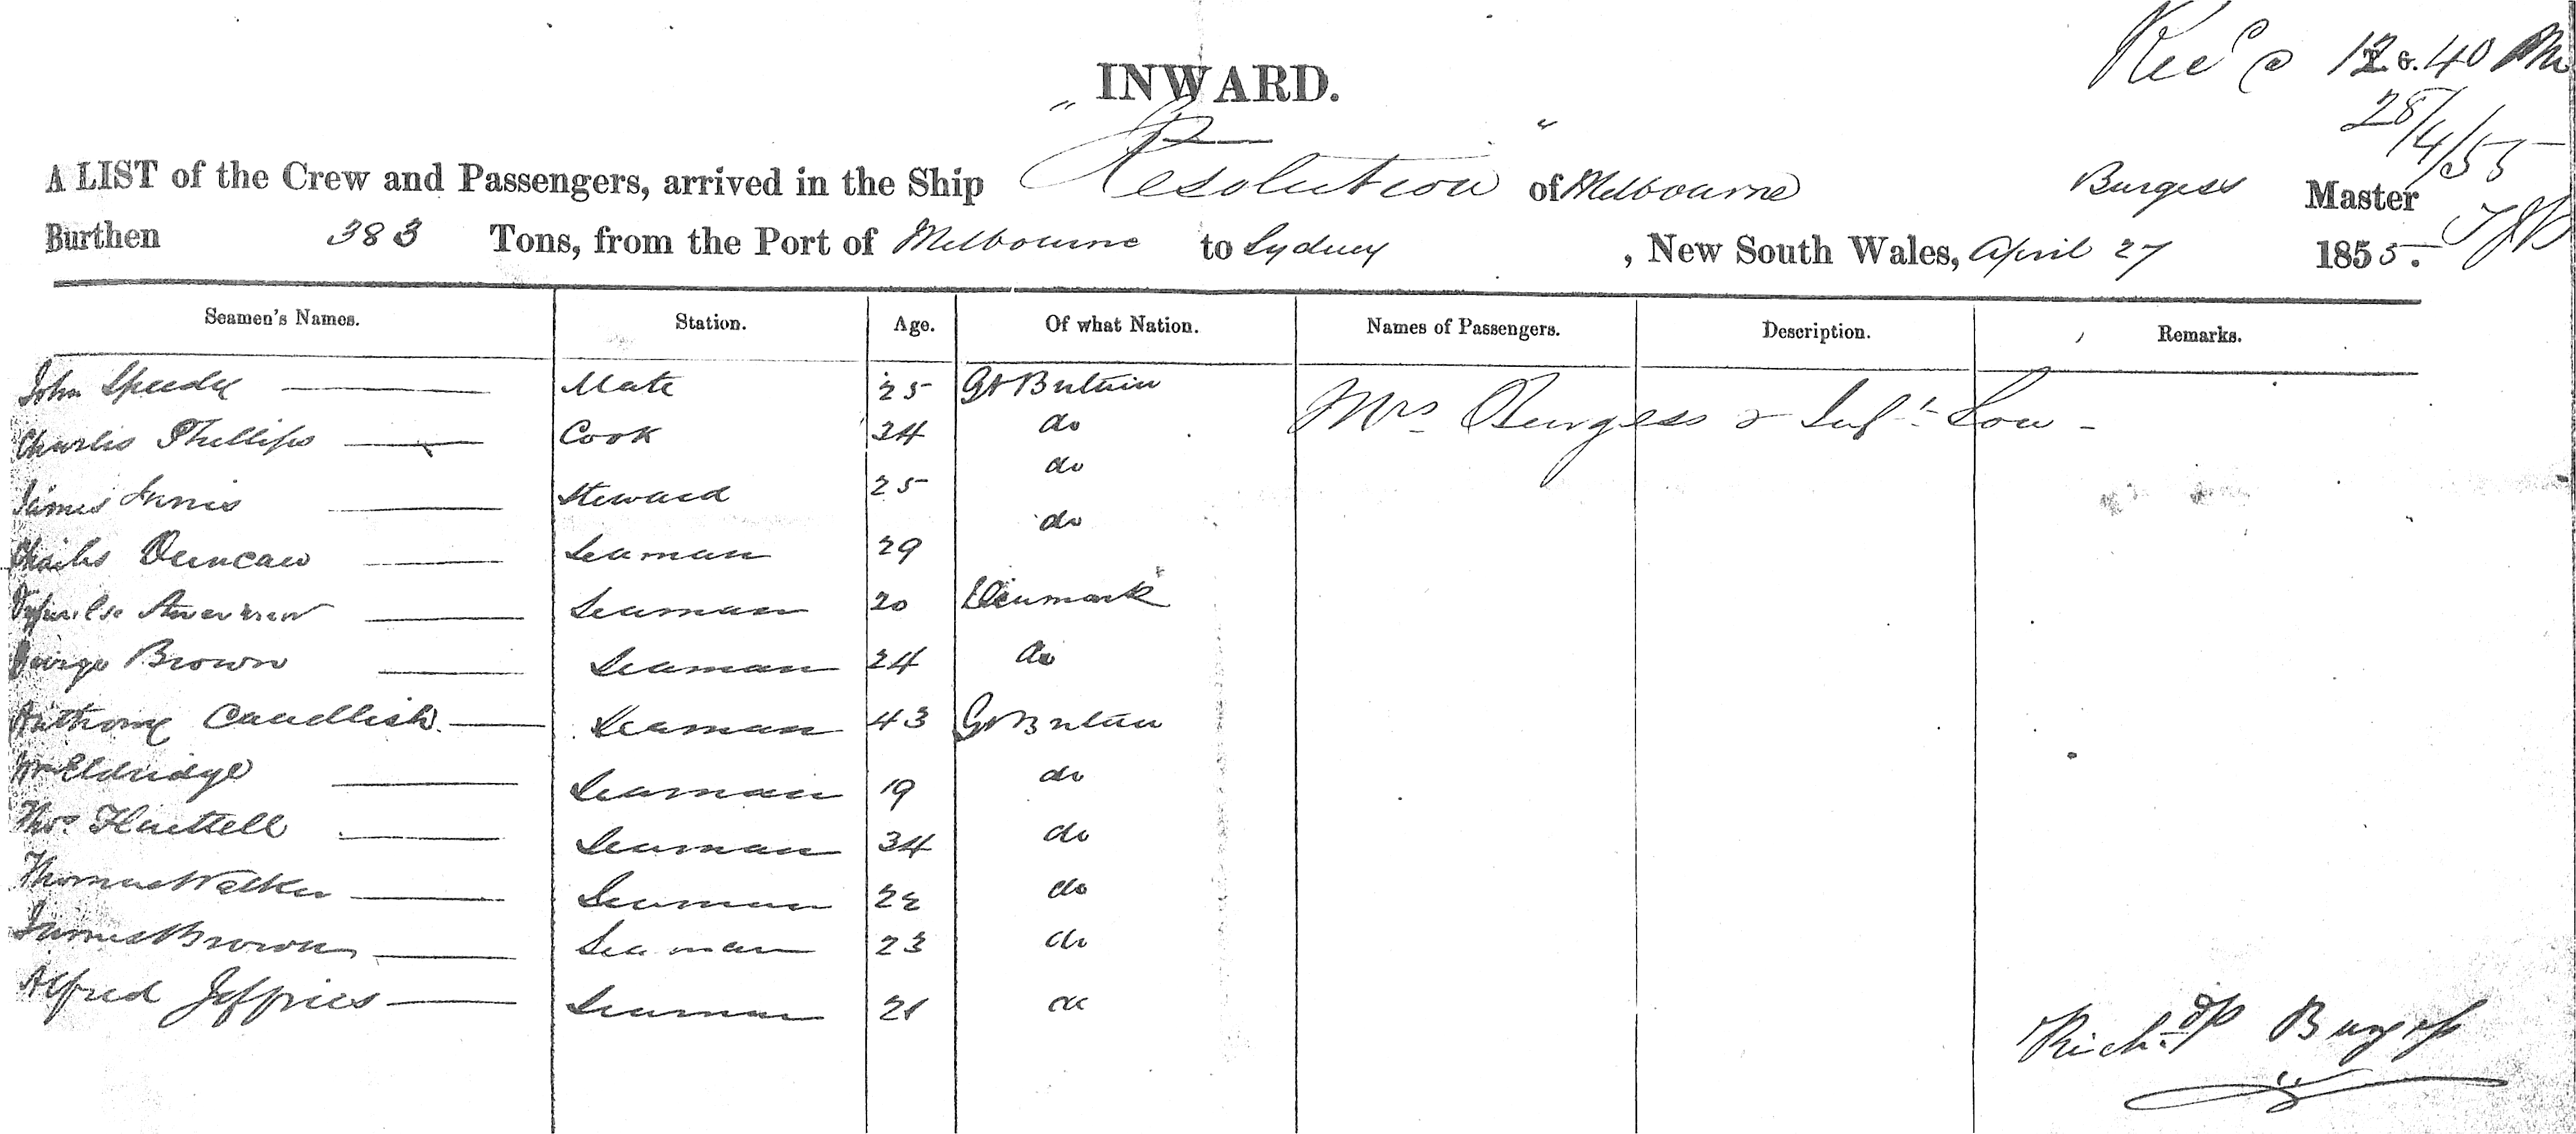 Rec'd 12.40 PM
28/4/55
INWARD.
A LIST of the Crew and Passengers, arrived in the Ship "Resolution" of Melbourne Burgess Master
Burthen 383 Tons, from the Port of Melbourne to Sydney , New South Wales, April 27 1855.
Seamen's Names. Station. Age. Of what Nation. Names of Passengers. Description. Remarks.
John Speedy Mate 25 Gt Britain Mrs Burgess & Inft Son
Charles Phillips Cook 24 do
James Innis Steward 25 do
Charles Duncan Seaman 29 do
Seaman 20 Denmark
George Brown Seaman 24 do
Anthony Candlish Seaman 43 Gt Britain
Wm Eldridge Seaman 19 do
Thos Seaman 34 do
Thomas Walker Seaman 22 do
James Brown Seaman 23 do
Alfred Jeffries Seaman 21 do
Richd P Burgess